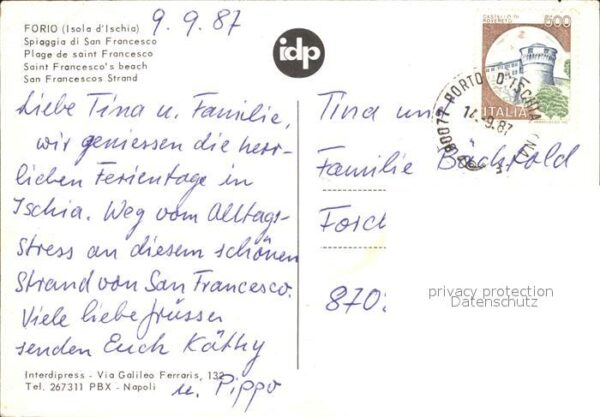 FORIO (Isola d'Ischia)
Spiaggia di San Francesco
Plage de saint Francesco
Saint Francesco's beach
San Francescos Strand
9. 9. 87
idp
CASTELLO DI
ROVERETO
500
ITALIA
80077 PORTO D'ISCHIA
14.9.87
Liebe Tina u. Familie,
wir geniessen die herr-
lichen Ferientage in
Ischia. Weg vom Alltags-
stress an diesem schönen
Strand von San Francesco.
Viele liebe Grüsse
senden Euch Käthy
u. Pippo
Tina und
Familie Bächtold
Forch
870
privacy protection
Datenschutz
Interdipress - Via Galileo Ferraris, 132
Tel. 267311 PBX - Napoli